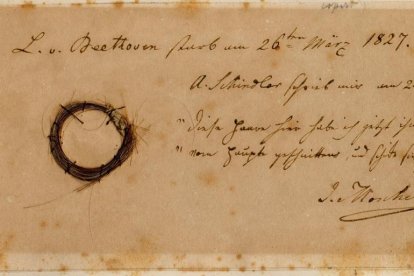 L. v. Beethoven starb am 26ten März 1827.
A. Schindler schrieb mir am 2
"diese Haare hier habe ich jetzt
" vom Haupte geschnitten, und